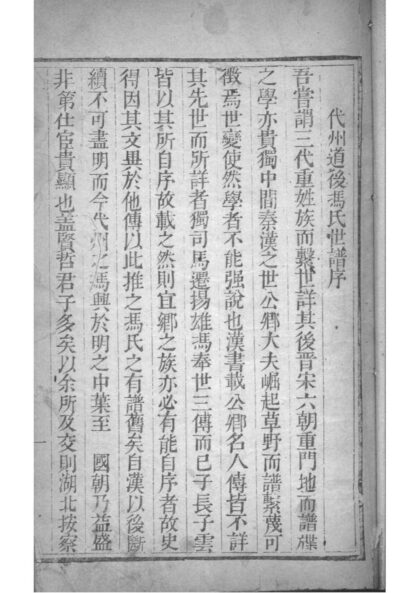 代州道後馮氏世譜序
吾嘗謂三代重姓族而繫世詳其後晉宋六朝重門地而譜牒
之學亦貴獨中間秦漢之世公卿大夫崛起草野而譜繫蔑可
徵焉世變使然學者不能强說也漢書載公卿名人傳皆不詳
其先世而所詳者獨司馬遷揚雄馮奉世三傳而已子長子雲
皆以其所自序故載之然則宜鄉之族亦必有能自序者故史
得因其文畢於他傳以此推之馮氏之有譜舊矣自漢以後斷
續不可盡明而今代州之馮興於明之中葉至 國朝乃益盛
非第仕宦貴顯也蓋賢哲君子多矣以余所及交則湖北按察